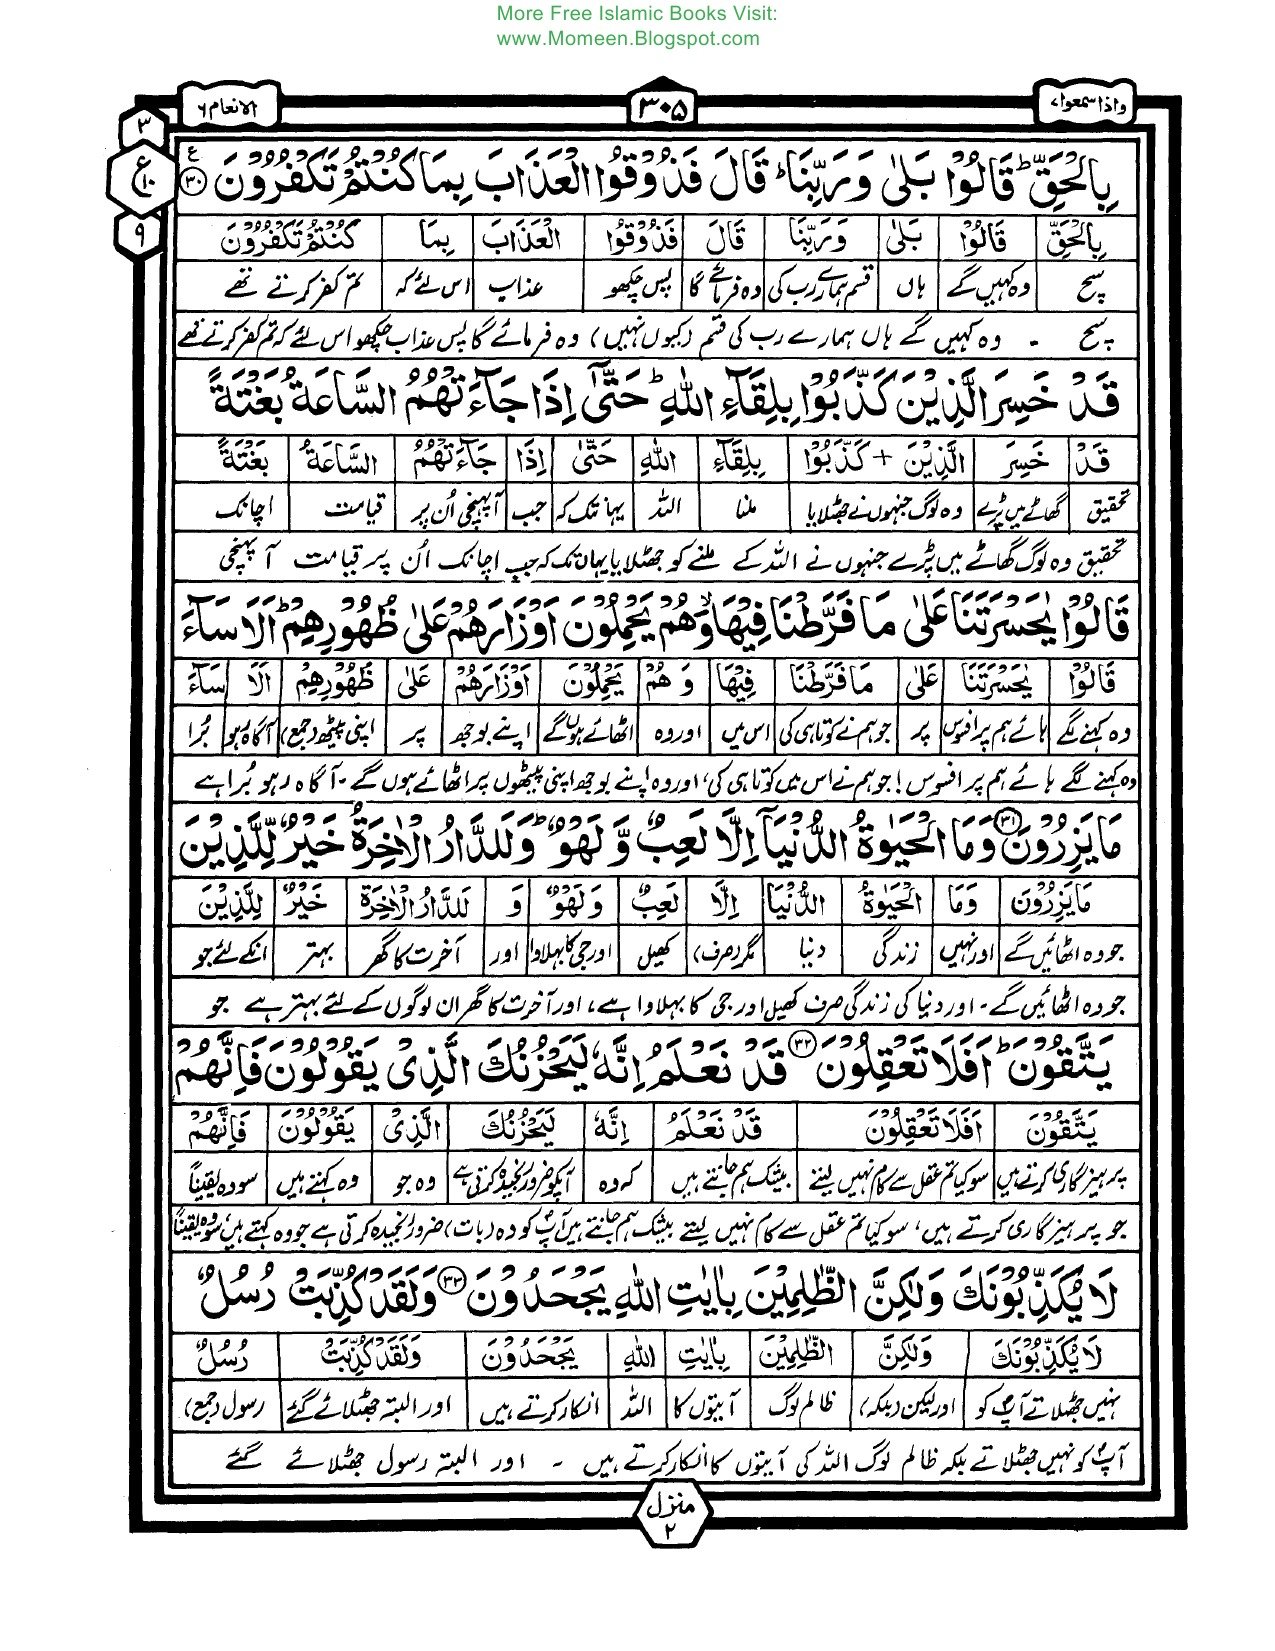 More Free Islamic Books Visit:
www.Momeen.Blogspot.com
واذا سمعوا ۷ ۳۰۵ الانعام ۶
۳
ع
۱۰
۹
بِالْحَقِّ ؕ قَالُوْا بَلٰى وَرَبِّنَا ؕ قَالَ فَذُوْقُوا الْعَذَابَ بِمَا كُنْتُمْ تَكْفُرُوْنَ ۳۰ ع
بِالْحَقِّ قَالُوْا بَلٰى وَرَبِّنَا قَالَ فَذُوْقُوا الْعَذَابَ بِمَا كُنْتُمْ تَكْفُرُوْنَ
سچ وہ کہیں گے ہاں قسم ہمارے رب کی وہ فرمائے گا پس چکھو عذاب اس لئے کہ تم کفر کرتے تھے
سچ - وہ کہیں گے ہاں ہمارے رب کی قسم (کیوں نہیں) وہ فرمائے گا پس عذاب چکھو اس لئے کہ تم کفر کرتے تھے
قَدْ خَسِرَ الَّذِيْنَ كَذَّبُوْا بِلِقَآءِ اللّٰهِ ؕ حَتّٰۤى اِذَا جَآءَتْهُمُ السَّاعَةُ بَغْتَةً
قَدْ خَسِرَ الَّذِيْنَ + كَذَّبُوْا بِلِقَآءِ اللّٰهِ حَتّٰى اِذَا جَآءَتْهُمُ السَّاعَةُ بَغْتَةً
تحقیق گھاٹے میں پڑے وہ لوگ جنہوں نے جھٹلایا ملنا اللہ یہانتک کہ جب آپہنچی اُن پر قیامت اچانک
تحقیق وہ لوگ گھاٹے میں پڑے جنہوں نے اللہ کے ملنے کو جھٹلایا یہاں تک کہ جب اچانک اُن پر قیامت آپہنچی
قَالُوْا يٰحَسْرَتَنَا عَلٰى مَا فَرَّطْنَا فِيْهَا ۙ وَهُمْ يَحْمِلُوْنَ اَوْزَارَهُمْ عَلٰى ظُهُوْرِهِمْ ؕ اَلَا سَآءَ
قَالُوْا يٰحَسْرَتَنَا عَلٰى مَا فَرَّطْنَا فِيْهَا وَهُمْ يَحْمِلُوْنَ اَوْزَارَهُمْ عَلٰى ظُهُوْرِهِمْ اَلَا سَآءَ
وہ کہنے لگے ہائے ہم پر افسوس پر جو ہم نے کوتاہی کی اس میں اور وہ اٹھائے ہوں گے اپنے بوجھ پر اپنی پیٹھ (جمع) آگاہ رہو بُرا
وہ کہنے لگے ہائے ہم پر افسوس! جو ہم نے اس میں کوتاہی کی، اور وہ اپنے بوجھ اپنی پیٹھوں پر اٹھائے ہوں گے - آگاہ رہو بُرا ہے
مَا يَزِرُوْنَ ۳۱ وَمَا الْحَيٰوةُ الدُّنْيَاۤ اِلَّا لَعِبٌ وَّلَهْوٌ ؕ وَلَلدَّارُ الْاٰخِرَةُ خَيْرٌ لِّلَّذِيْنَ
مَا يَزِرُوْنَ وَمَا الْحَيٰوةُ الدُّنْيَا اِلَّا لَعِبٌ وَلَهْوٌ وَ لَلدَّارُ الْاٰخِرَةُ خَيْرٌ لِلَّذِيْنَ
جو وہ اٹھائیں گے اور نہیں زندگی دنیا مگر (صرف) کھیل اور جی کا بہلاوا اور آخرت کا گھر بہتر انکے لئے جو
جو وہ اٹھائیں گے - اور دنیا کی زندگی صرف کھیل اور جی کا بہلاوا ہے، اور آخرت کا گھر ان لوگوں کے لئے بہتر ہے جو
يَتَّقُوْنَ ؕ اَفَلَا تَعْقِلُوْنَ ۳۲ قَدْ نَعْلَمُ اِنَّهٗ لَيَحْزُنُكَ الَّذِىْ يَقُوْلُوْنَ فَاِنَّهُمْ
يَتَّقُوْنَ اَفَلَا تَعْقِلُوْنَ قَدْ نَعْلَمُ اِنَّهٗ لَيَحْزُنُكَ الَّذِىْ يَقُوْلُوْنَ فَاِنَّهُمْ
پرہیزگاری کرتے ہیں سو کیا تم عقل سے کام نہیں لیتے بیشک ہم جانتے ہیں کہ وہ آپکو ضرور رنجیدہ کرتی ہے وہ جو وہ کہتے ہیں سو وہ یقیناً
جو پرہیزگاری کرتے ہیں، سو کیا تم عقل سے کام نہیں لیتے بیشک ہم جانتے ہیں آپؐ کو وہ (بات) ضرور رنجیدہ کرتی ہے جو وہ کہتے ہیں، سو وہ یقیناً
لَا يُكَذِّبُوْنَكَ وَلٰكِنَّ الظّٰلِمِيْنَ بِاٰيٰتِ اللّٰهِ يَجْحَدُوْنَ ۳۳ وَلَقَدْ كُذِّبَتْ رُسُلٌ
لَا يُكَذِّبُوْنَكَ وَلٰكِنَّ الظّٰلِمِيْنَ بِاٰيٰتِ اللّٰهِ يَجْحَدُوْنَ وَلَقَدْ كُذِّبَتْ رُسُلٌ
نہیں جھٹلاتے آپؐ کو اور لیکن (بلکہ) ظالم لوگ آیتوں کا اللہ انکار کرتے ہیں اور البتہ جھٹلائے گئے رسول (جمع)
آپؐ کو نہیں جھٹلاتے بلکہ ظالم لوگ اللہ کی آیتوں کا انکار کرتے ہیں - اور البتہ رسول جھٹلائے گئے
منزل
۲